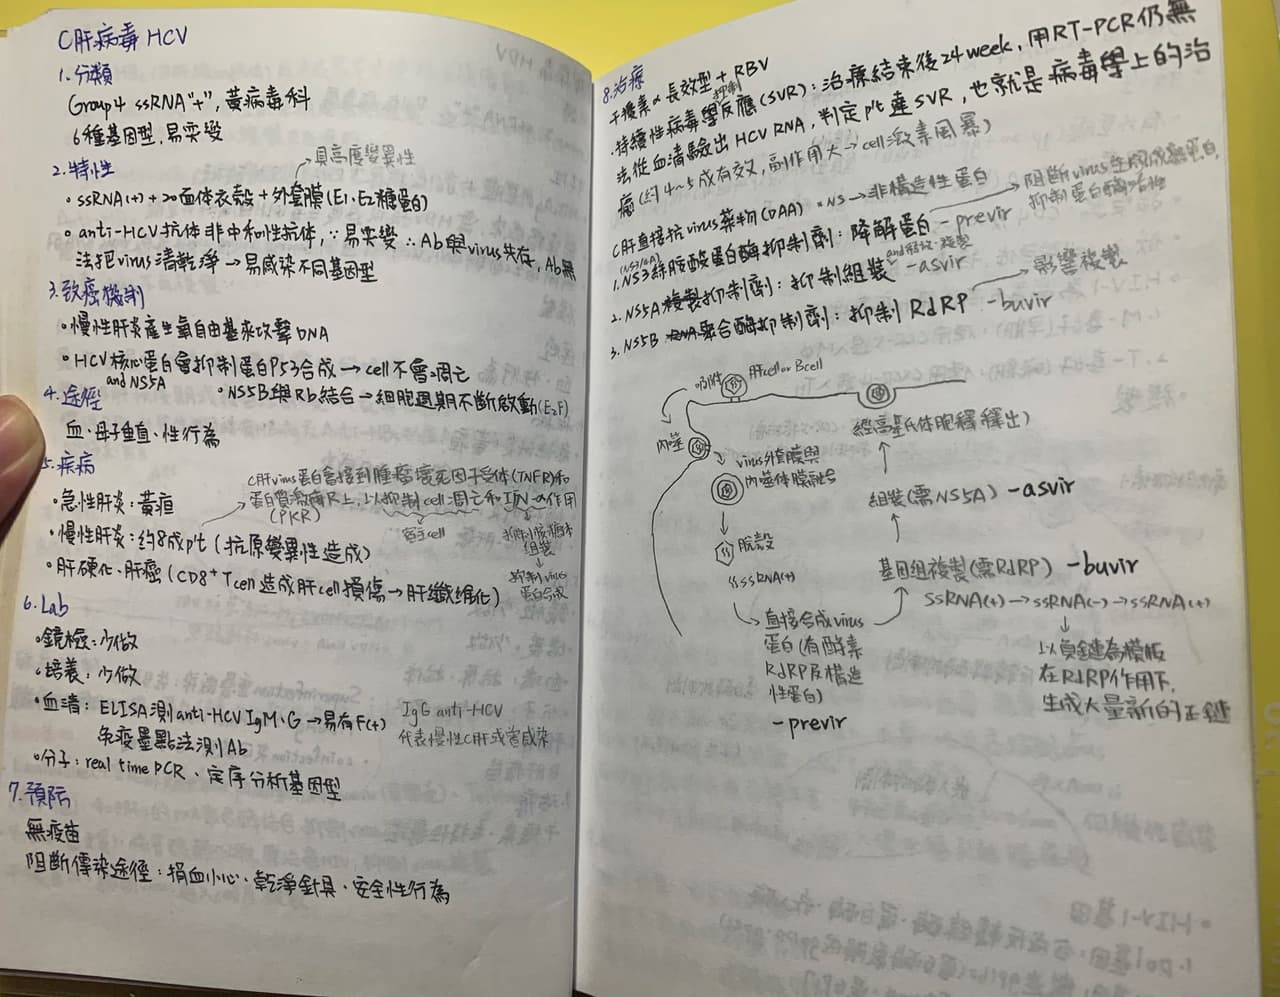 C肝病毒 HCV
1. 分類
Group4 ssRNA"+", 黃病毒科
6種基因型, 易突變
2. 特性
→ 具高度變異性
• ssRNA(+) + 20面体衣殼 + 外套膜 (E1、E2糖蛋白)
• anti-HCV抗体非中和性抗体, ∵易突變 ∴Ab與virus共存, Ab無
法把virus清乾淨 → 易感染不同基因型
3. 致癌機制
• 慢性肝炎產生氧自由基來攻擊DNA
• HCV核心蛋白會抑制蛋白P53合成 → cell不會凋亡
and NS5A
• NS5B與Rb結合 → 細胞週期不斷啟動(E2F)
4. 途徑
血、母子垂直、性行為
5. 疾病
C肝virus蛋白會接到腫瘤壞死因子受体(TNFR)和
蛋白質激酶R上, 以抑制cell凋亡和IFN-α作用
(PKR)
宿主cell
抑制核糖体
組裝
↓
抑制virus
蛋白合成
• 急性肝炎：黃疸
• 慢性肝炎：約8成p't (抗原變異性造成)
• 肝硬化、肝癌 (CD8+ Tcell造成肝cell損傷 → 肝纖維化)
6. Lab
• 鏡檢：少做
• 培養：少做
• 血清：ELISA測anti-HCV IgM、G → 易有F(+)
免疫墨點法測Ab
IgG anti-HCV
代表慢性C肝或曾感染
• 分子：real time PCR、定序分析基因型
7. 預防
無疫苗
阻斷傳染途徑：捐血小心、乾淨針具、安全性行為
8. 治療
干擾素α長效型 + RBV
抑制
• 持續性病毒學反應(SVR)：治療結束後24week, 用RT-PCR仍無
法從血清驗出HCV RNA, 判定p't達SVR, 也就是病毒學上的治
癒 (約4~5成有效, 副作用大 → cell激素風暴)
C肝直接抗virus藥物(DAA) • NS → 非構造性蛋白
(NS3/4A)
1. NS3絲胺酸蛋白酶抑制劑：降解蛋白 -previr
→ 阻斷virus生成成熟蛋白,
抑制蛋白酶活性
2. NS5A複製抑制劑：抑制組裝 -asvir
3. NS5B RNA聚合酶抑制劑：抑制RdRP -buvir
→ 影響複製
吸附
肝cell or Bcell
內噬
virus外套膜與
內噬体膜融合
脫殼
ssRNA(+)
直接合成virus
蛋白(有酵素
RdRP及構造
性蛋白)
-previr
基因組複製(需RdRP) -buvir
ssRNA(+) → ssRNA(-) → ssRNA(+)
↓
以負鏈為模板
在RdRP作用下,
生成大量新的正鏈
組裝(需NS5A) -asvir
經高基氏体胞釋釋出)